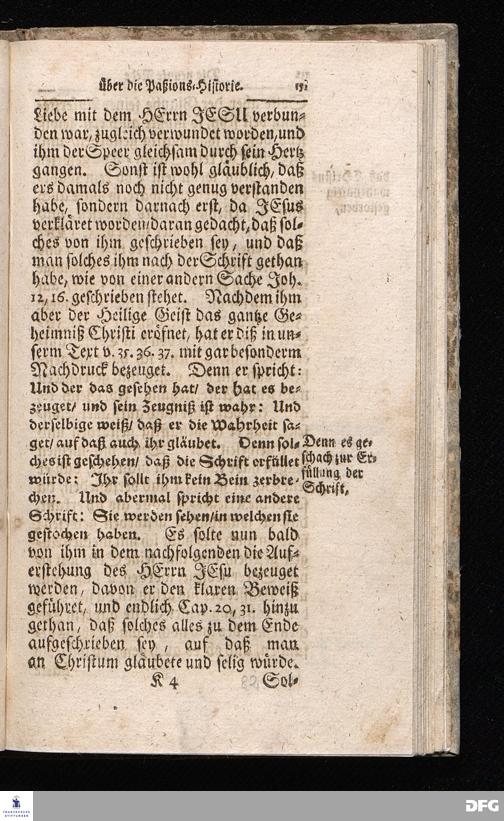 über die Paßions-Historie. 151
Liebe mit dem HErrn JESU verbun-
den war, zugleich verwundet worden, und
ihm der Speer gleichsam durch sein Hertz
gangen. Sonst ist wohl gläublich, daß
ers damals noch nicht genug verstanden
habe, sondern darnach erst, da JEsus
verkläret worden/daran gedacht, daß sol-
ches von ihm geschrieben sey, und daß
man solches ihm nach der Schrift gethan
habe, wie von einer andern Sache Joh.
12, 16. geschrieben stehet. Nachdem ihm
aber der Heilige Geist das gantze Ge-
heimniß Christi eröfnet, hat er diß in un-
serm Text v. 35. 36. 37. mit gar besonderm
Nachdruck bezeuget. Denn er spricht:
Und der das gesehen hat/ der hat es be-
zeuget/ und sein Zeugniß ist wahr: Und
derselbige weiß/ daß er die Wahrheit sa-
get/ auf daß auch ihr gläubet. Denn sol-
ches ist geschehen/ daß die Schrift erfüllet
würde: Ihr sollt ihm kein Bein zerbre-
chen. Und abermal spricht eine andere
Schrift: Sie werden sehen/in welchen sie
gestochen haben. Es solte nun bald
von ihm in dem nachfolgenden die Auf-
erstehung des HErrn JEsu bezeuget
werden, davon er den klaren Beweiß
geführet, und endlich Cap. 20, 31. hinzu
gethan, daß solches alles zu dem Ende
aufgeschrieben sey, auf daß man
an Christum gläubete und selig würde.
K 4 Sol-
Denn es ge-
schach zur Er-
füllung der
Schrift,
FRANCKESCHE
STIFTUNGEN
DFG